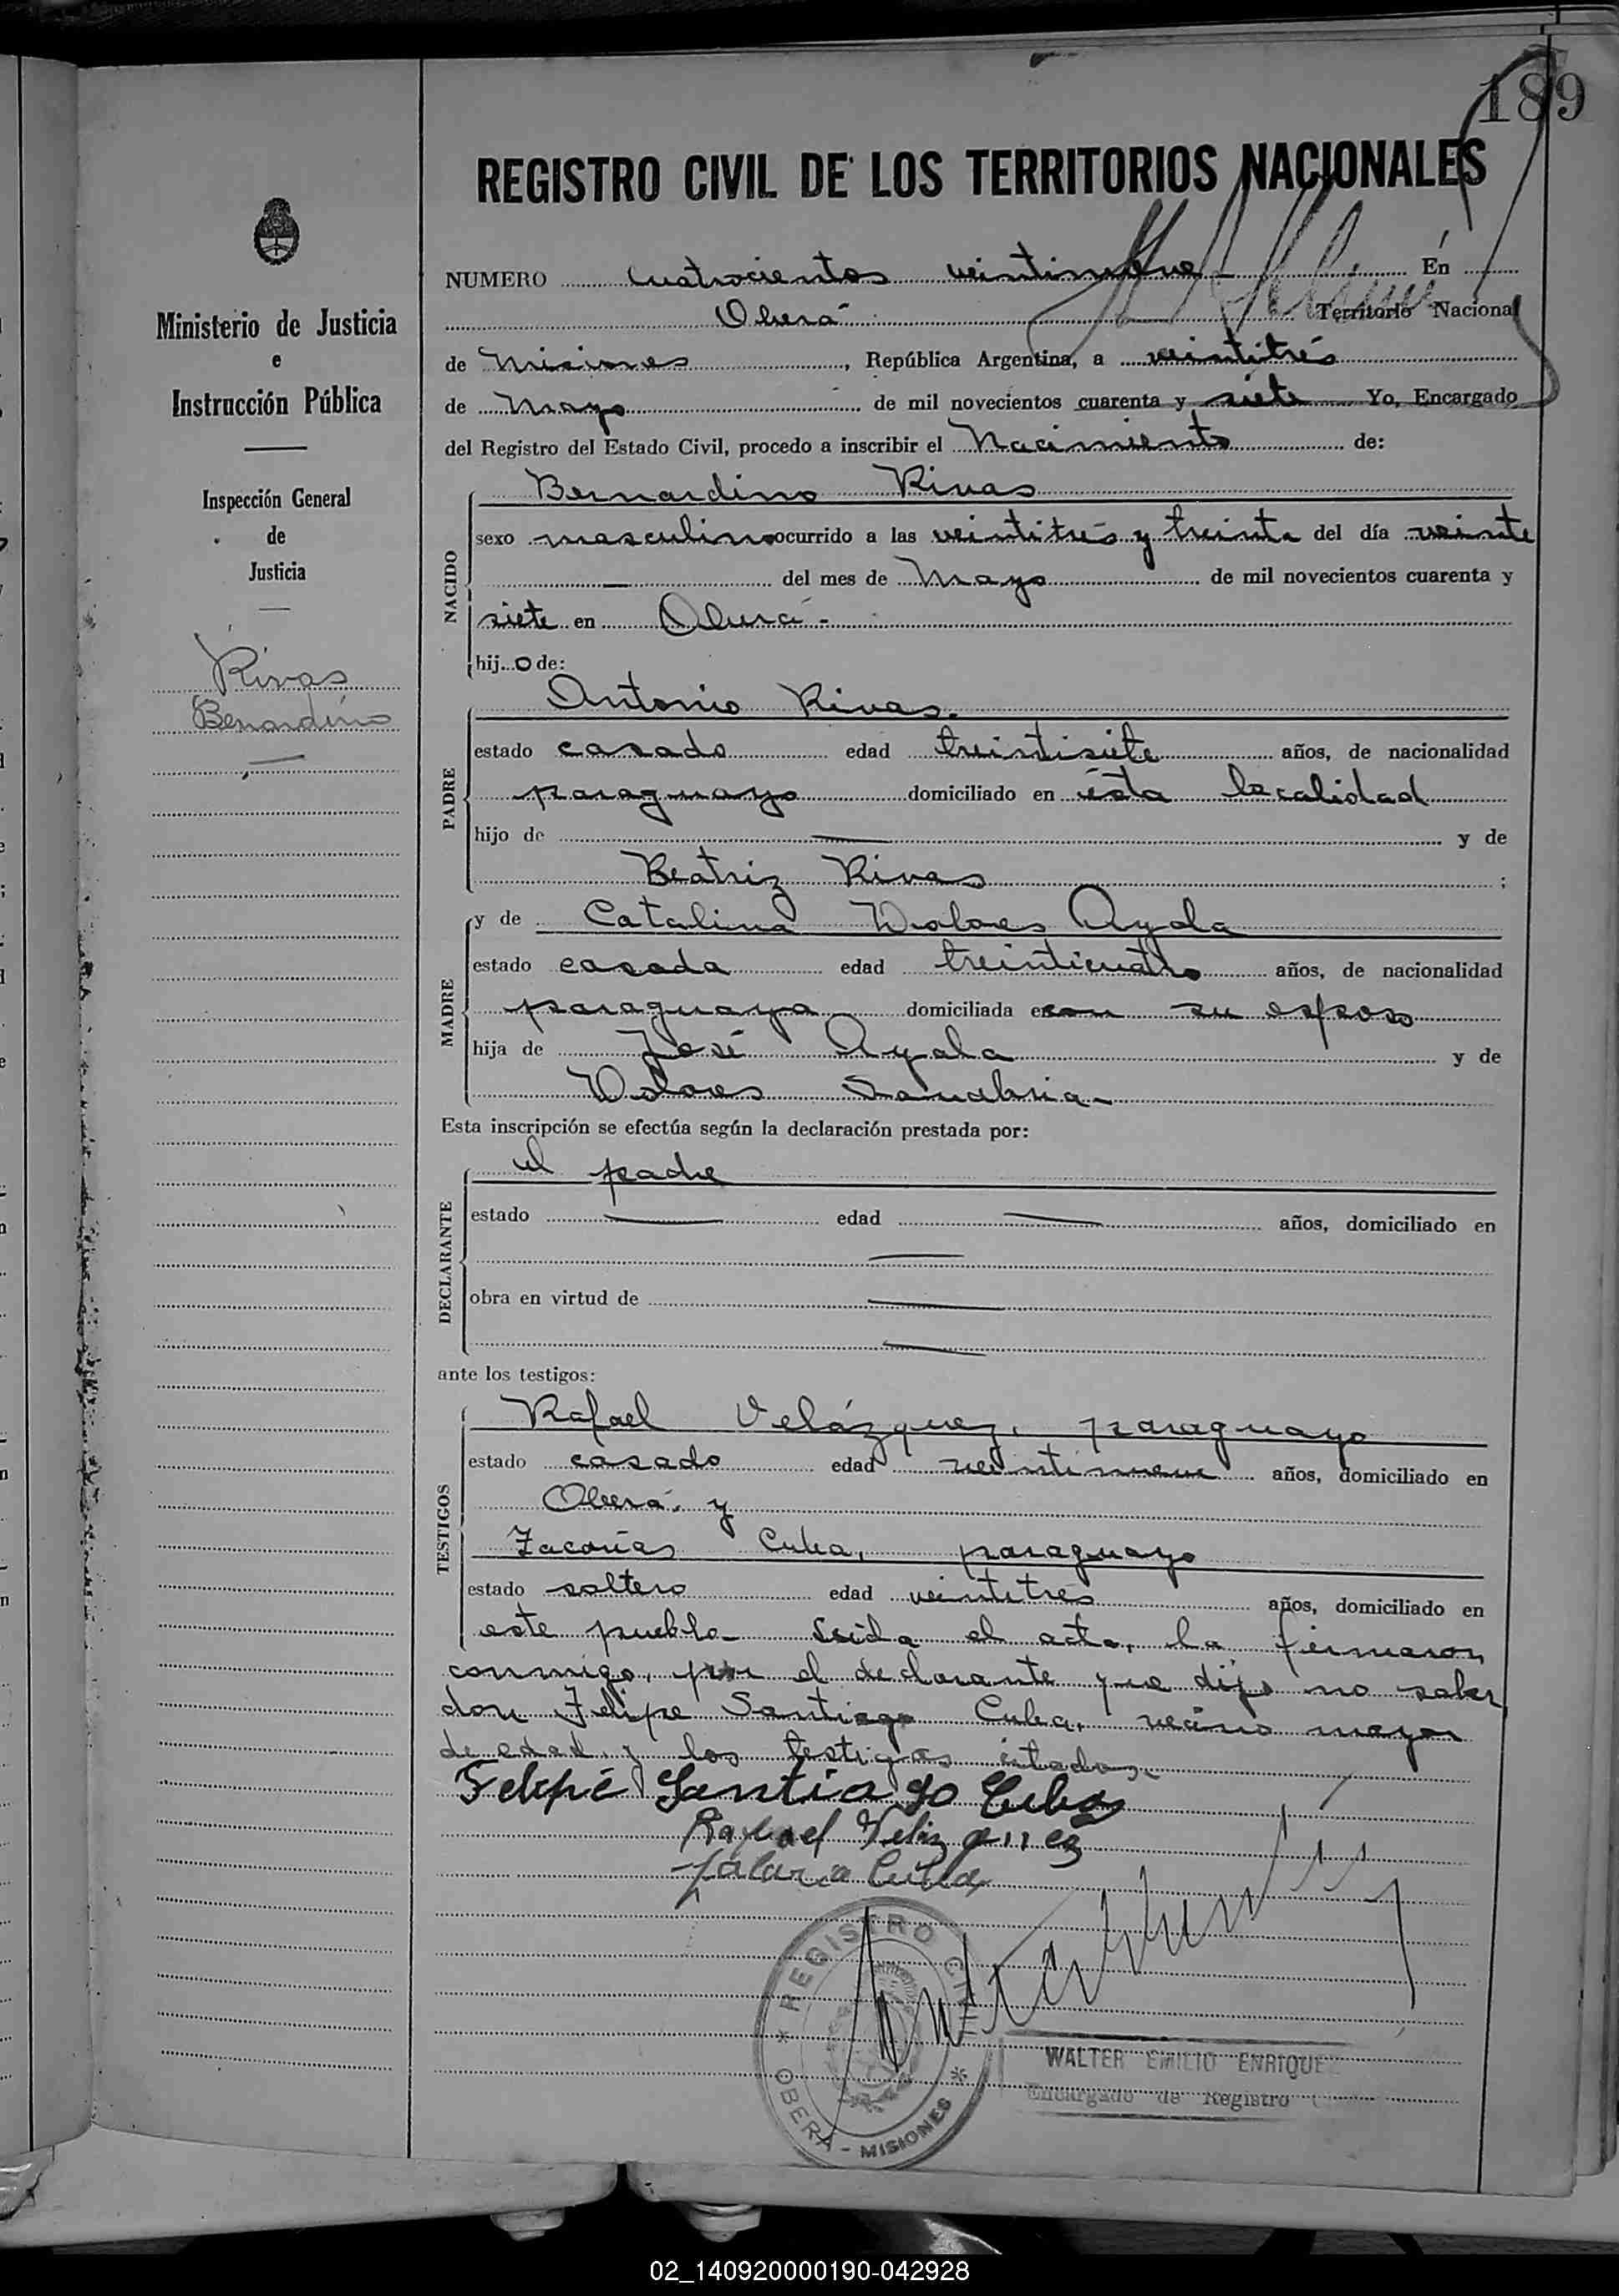 189
REGISTRO CIVIL DE LOS TERRITORIOS NACIONALES
NUMERO cuatrocientos veintinueve - En
Oberá - Territorio Nacional
de Misiones, República Argentina, a veintitrés
de Mayo de mil novecientos cuarenta y siete Yo, Encargado
del Registro del Estado Civil, procedo a inscribir el Nacimiento de:
Ministerio de Justicia
e
Instrucción Pública
Inspección General
de
Justicia
Rivas
Bernardino
NACIDO
Bernardino Rivas
sexo masculino ocurrido a las veintitrés y treinta del día veinte
del mes de Mayo de mil novecientos cuarenta y
siete en Oberá -
hijo de:
PADRE
Antonio Rivas.
estado casado edad treintisiete años, de nacionalidad
paraguayo domiciliado en ésta localidad
hijo de — y de
Beatriz Rivas ;
MADRE
y de Catalina Dolores Ayala
estado casada edad treinticuatro años, de nacionalidad
paraguaya domiciliada con su esposo
hija de José Ayala y de
Dolores Sanabria -
Esta inscripción se efectúa según la declaración prestada por:
DECLARANTE
el padre
estado — edad — años, domiciliado en
—
obra en virtud de —
—
ante los testigos:
TESTIGOS
Rafael Velázquez, paraguayo
estado casado edad veintinueve años, domiciliado en
Oberá, y
Zacarías Cuba, paraguayo
estado soltero edad veintitrés años, domiciliado en
este pueblo - Leída el acta, la firmaron
conmigo, por el declarante que dijo no saber
don Felipe Santiago Cuba, vecino mayor
de edad, y los testigos citados.-
Felipé Santiago Cuba
Rafael
Cuba
REGISTRO CIVIL
OBERÁ - MISIONES
WALTER EMILIO ENRIQUEZ
Encargado de Registro
02_140920000190-042928